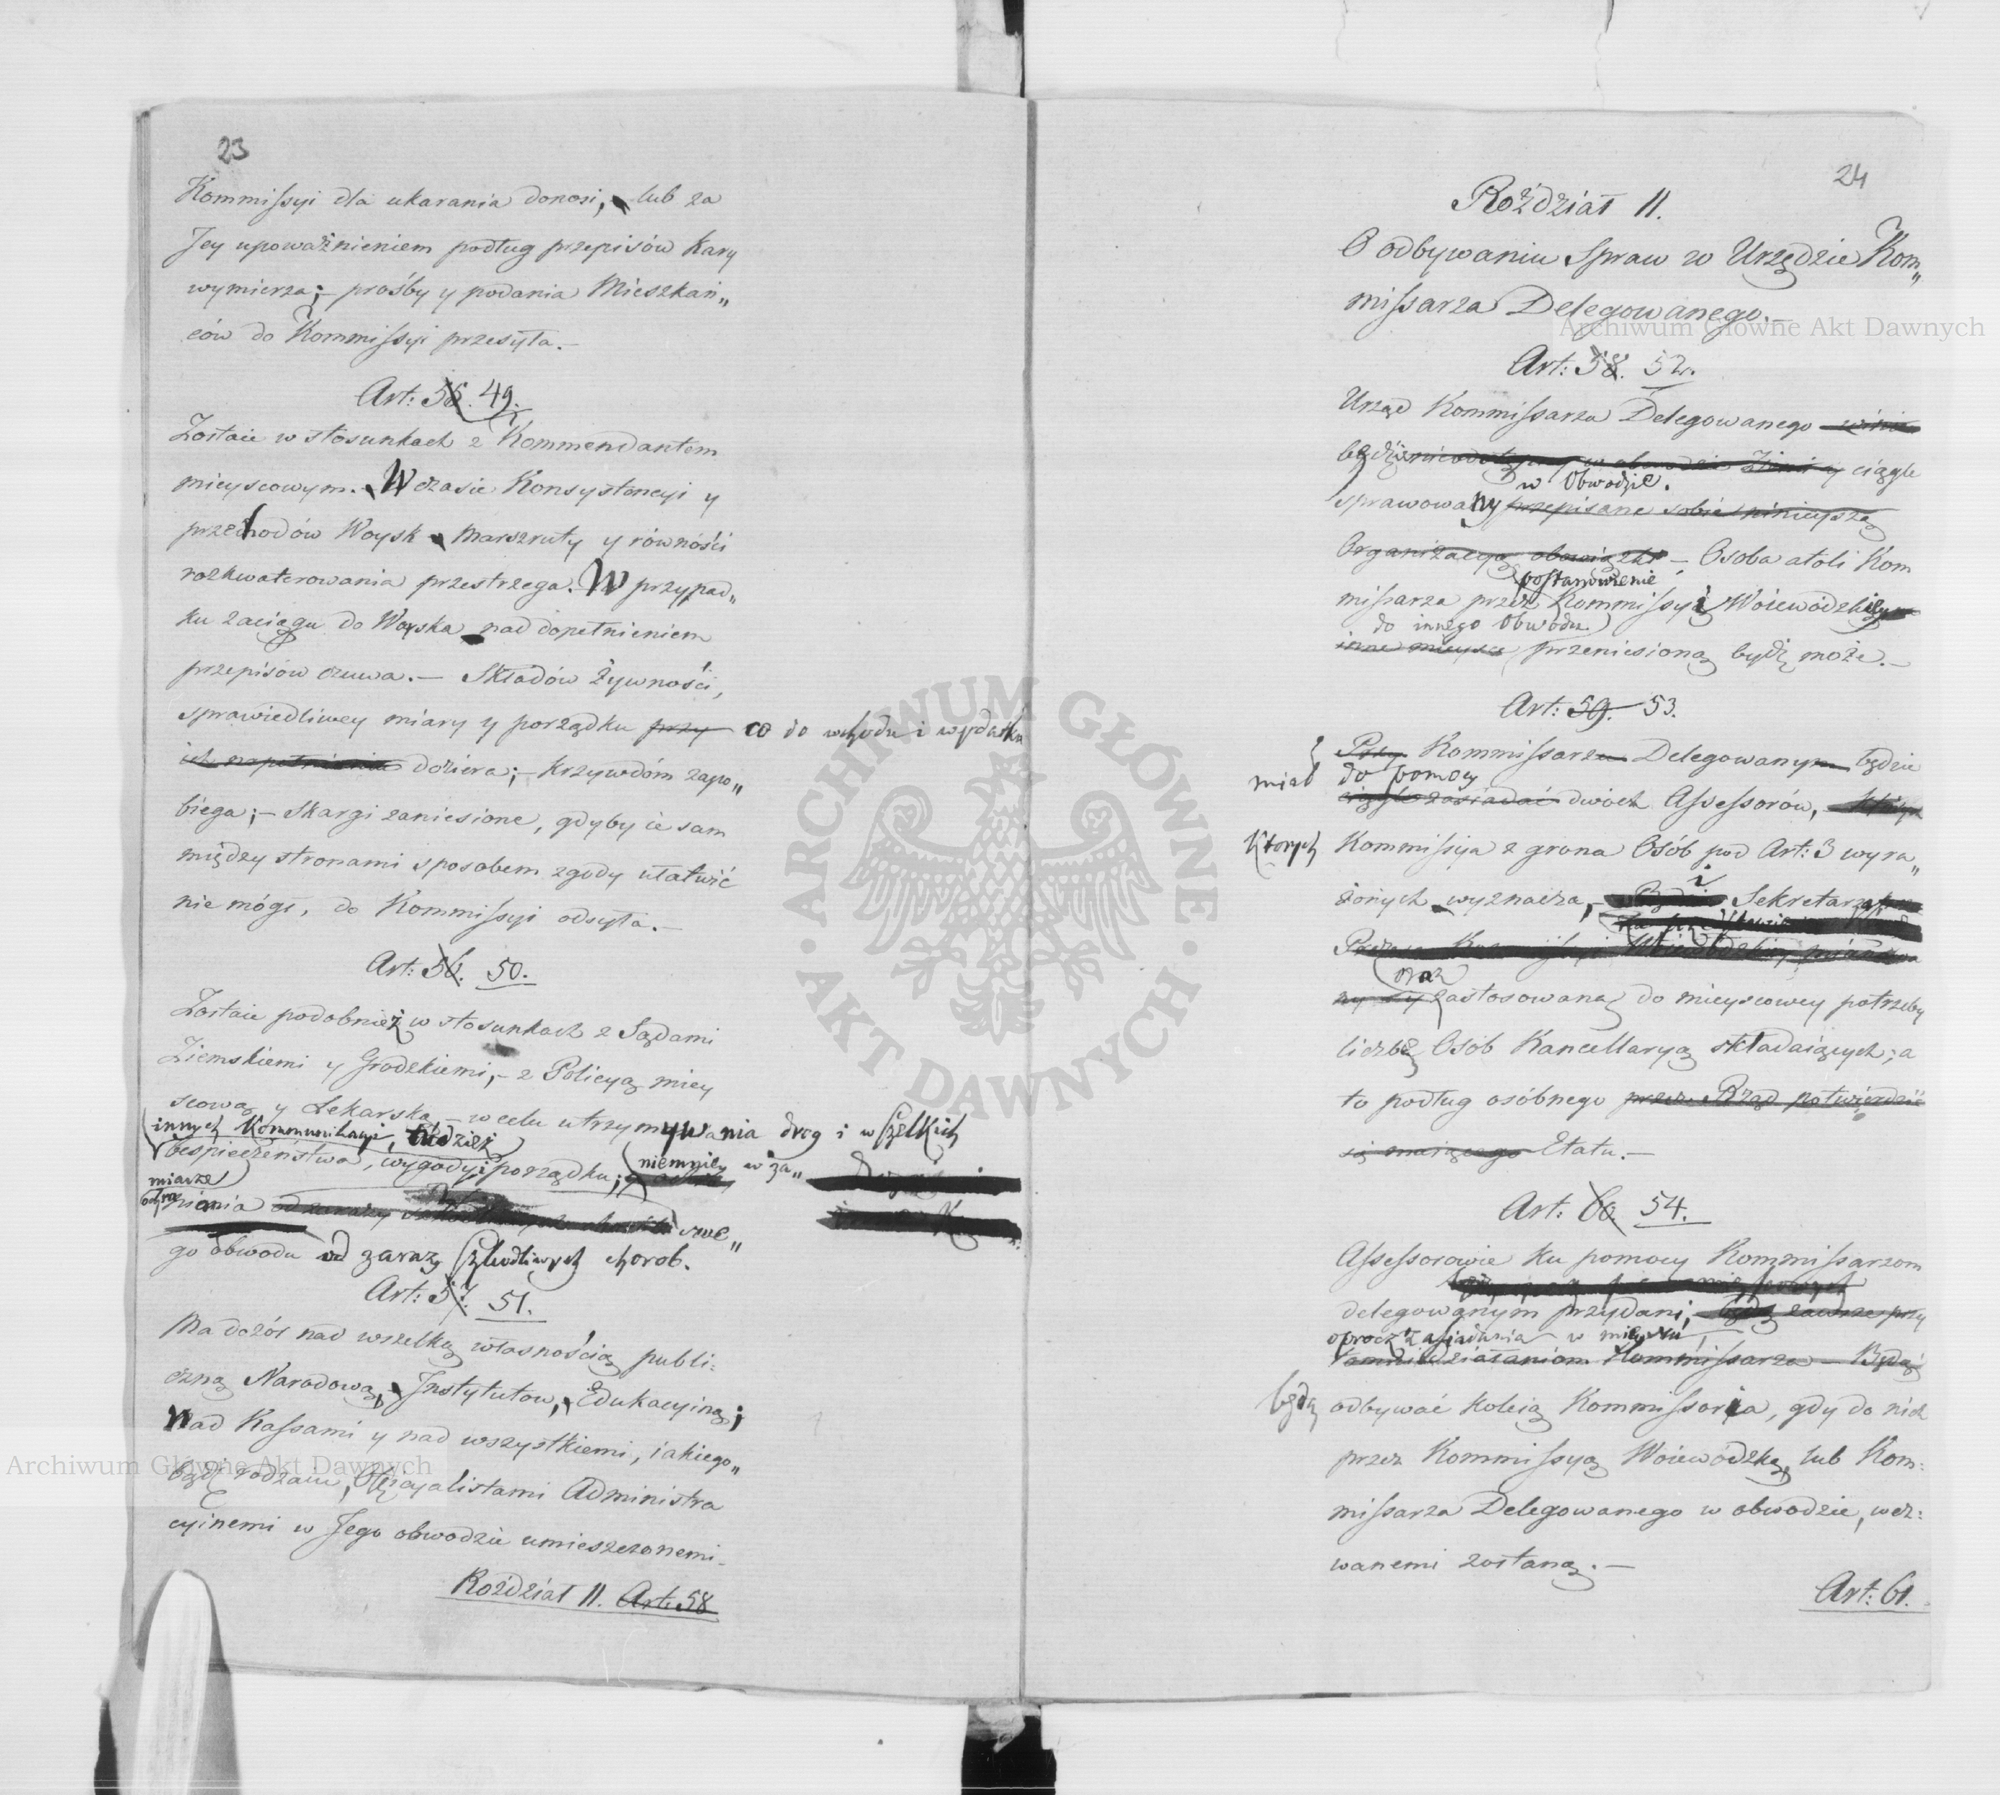 23
Kommissyi dla ukarania donosi, lub za
Jey upoważnieniem podług przepisów kary
wymierza; – prośby y podania Mieszkań„
ców do Kommissyi przesyła. –
Art: 55. 49.
Zostaie w stosunkach z Kommendantem
mieyscowym. W czasie Konsystencyi y
przechodów Woysk Marszruty y równości
rozkwaterowania przestrzega. W przypad„
ku zaciągu do Woyska nad dopełnieniem
przepisów czuwa. – Składów Żywności,
sprawiedliwey miary y porządku przy co do wchodu i wydatku
ich napełnieniu doziera; – Krzywdóm zapo„
biega; – Skargi zaniesione, gdyby ie sam
między stronami sposobem zgody ułatwić
nie mógł, do Kommissyi odsyła. –
Art: 56. 50.
Zostaie podobnież w stosunkach z Sądami
Ziemskiemi y Grodzkiemi, – z Policyą miey
scową y Lekarską – w celu utrzymywania drog i wszelkich
innych Kommunikacyi, tudzież
bespieczeństwa, wygody i porządku; niemniey w za„
miarze
ochronienia swe„
go obwodu od zarazy szkodliwych chorob.
Art: 57. 51.
Ma dozór nad wszelką własnością publi:
czną Narodową, Instytutow, Edukacyiną;
Nad Kassami y nad wszystkiemi, iakiego„
bądź rodzaiu, Officyalistami Administra
cyinemi w Jego obwodzie umieszczonemi.
Roździał II. Art: 58
24
Roździał II.
O odbywaniu Spraw w Urzędzie Kom„
missarza Delegowanego. –
Art: 58. 52.
Urząd Kommissarza Delegowanego
będzie ciągle
w Obwodzie.
sprawowany przepisane sobie ninieyszą
Organizacyą obowiązki – Osoba atoli Kom
postanowienie
missarza przez Kommissyi Woiewódzkiey
do innego Obwodu
inne mieysce przeniesioną bydź może. –
Art: 59. 53.
Przy Kommissarzu Delegowanym będzie
miał do pomocy
ciągle zasiadać dwóch Assessorów,
Ktorych Kommissya z grona Osób pod Art: 3 wyra„
żonych wyznacza, i Sekretarza
oraz
zastosowaną do mieyscowey potrzeby
liczbę Osób Kancellaryą składaiących; a
to podług osóbnego przez Rząd potwierdzić
się maiącego Etatu. –
Art: 60. 54.
Assessorowie ku pomocy Kommissarzom
delegowanym przydani; będą zawsze przy
oprocz zasiadania w mieyscu
działaniom Kommissarza – Będą
będą odbywać koleią Kommissoria, gdy do nich
przez Kommissyą Woiewódzką, lub Kom:
missarza Delegowanego w obwodzie, wez:
wanemi zostaną. –
Art: 61.
ARCHIWUM GŁÓWNE AKT DAWNYCH
Archiwum Główne Akt Dawnych
Archiwum Główne Akt Dawnych